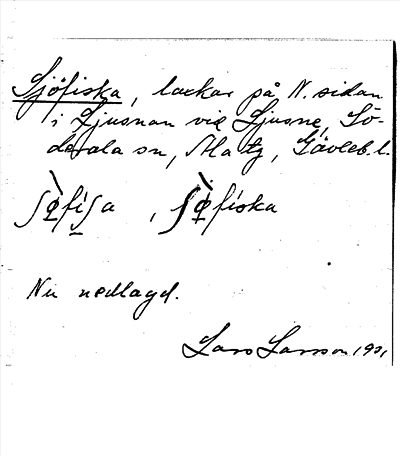 Sjöfiska, lackar på N. sidan
i Ljusnan vid Ljusne, Sö-
derala sn, Ala tg, Gävleb. l.
ʃö̀fiʃa, ʃö̀fiska
Nu nedlagd.
Lars Larsson 1931